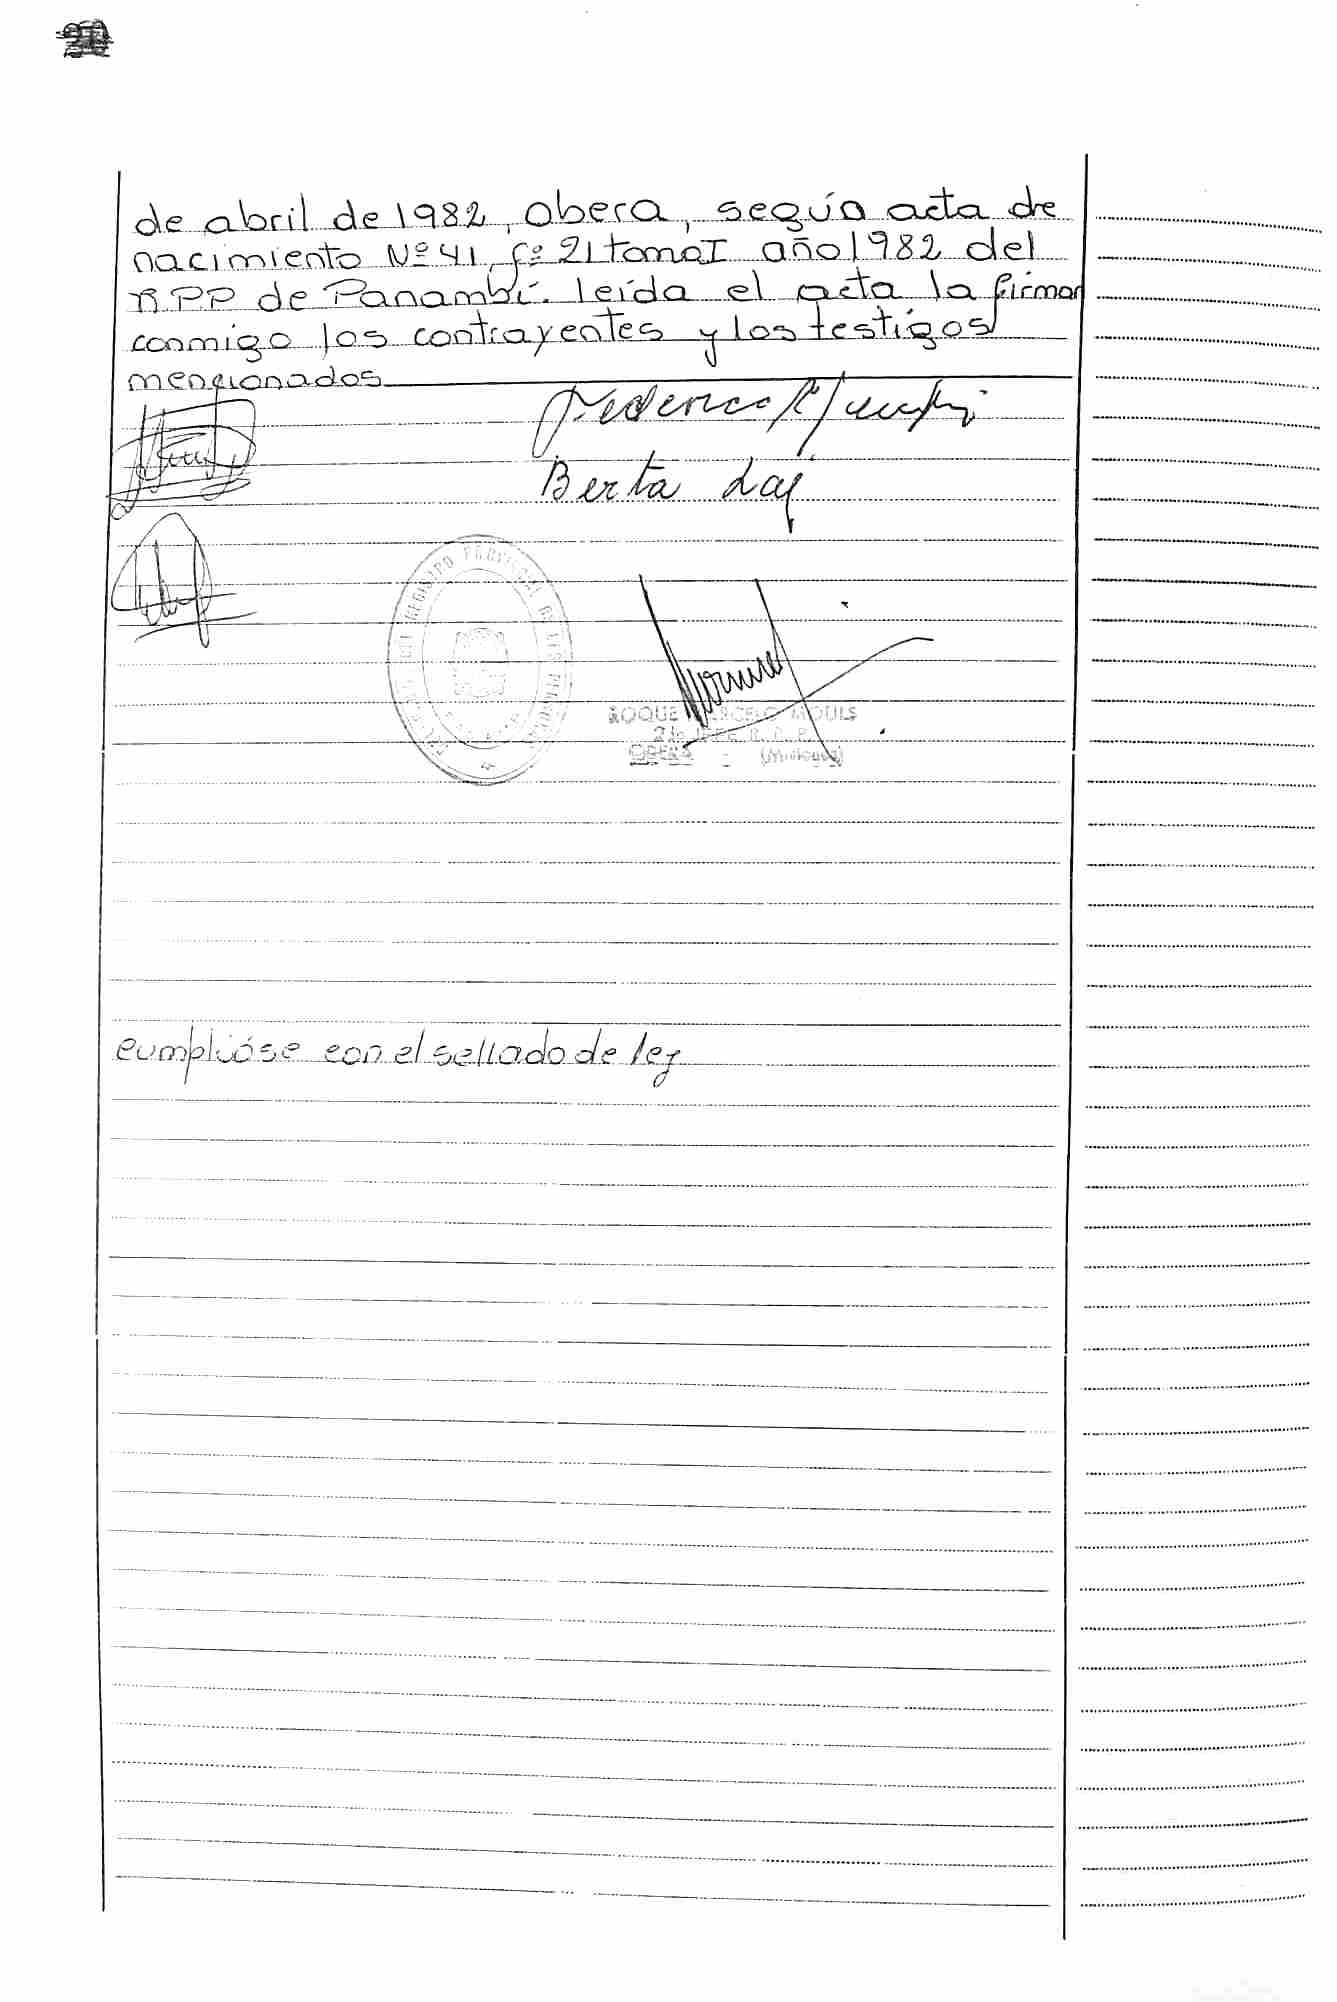 de abril de 1982, Obera, según acta de
nacimiento Nº 41, fº 21 tomo I año 1982 del
R.P.P de Panambí. leída el acta la firman
conmigo los contrayentes y los testigos
mencionados
Federico
Berta
REGISTRO PROVINCIAL DE LAS PERSONAS
ROQUE MOULS
OBERA - (Misiones)
cumplióse con el sellado de ley